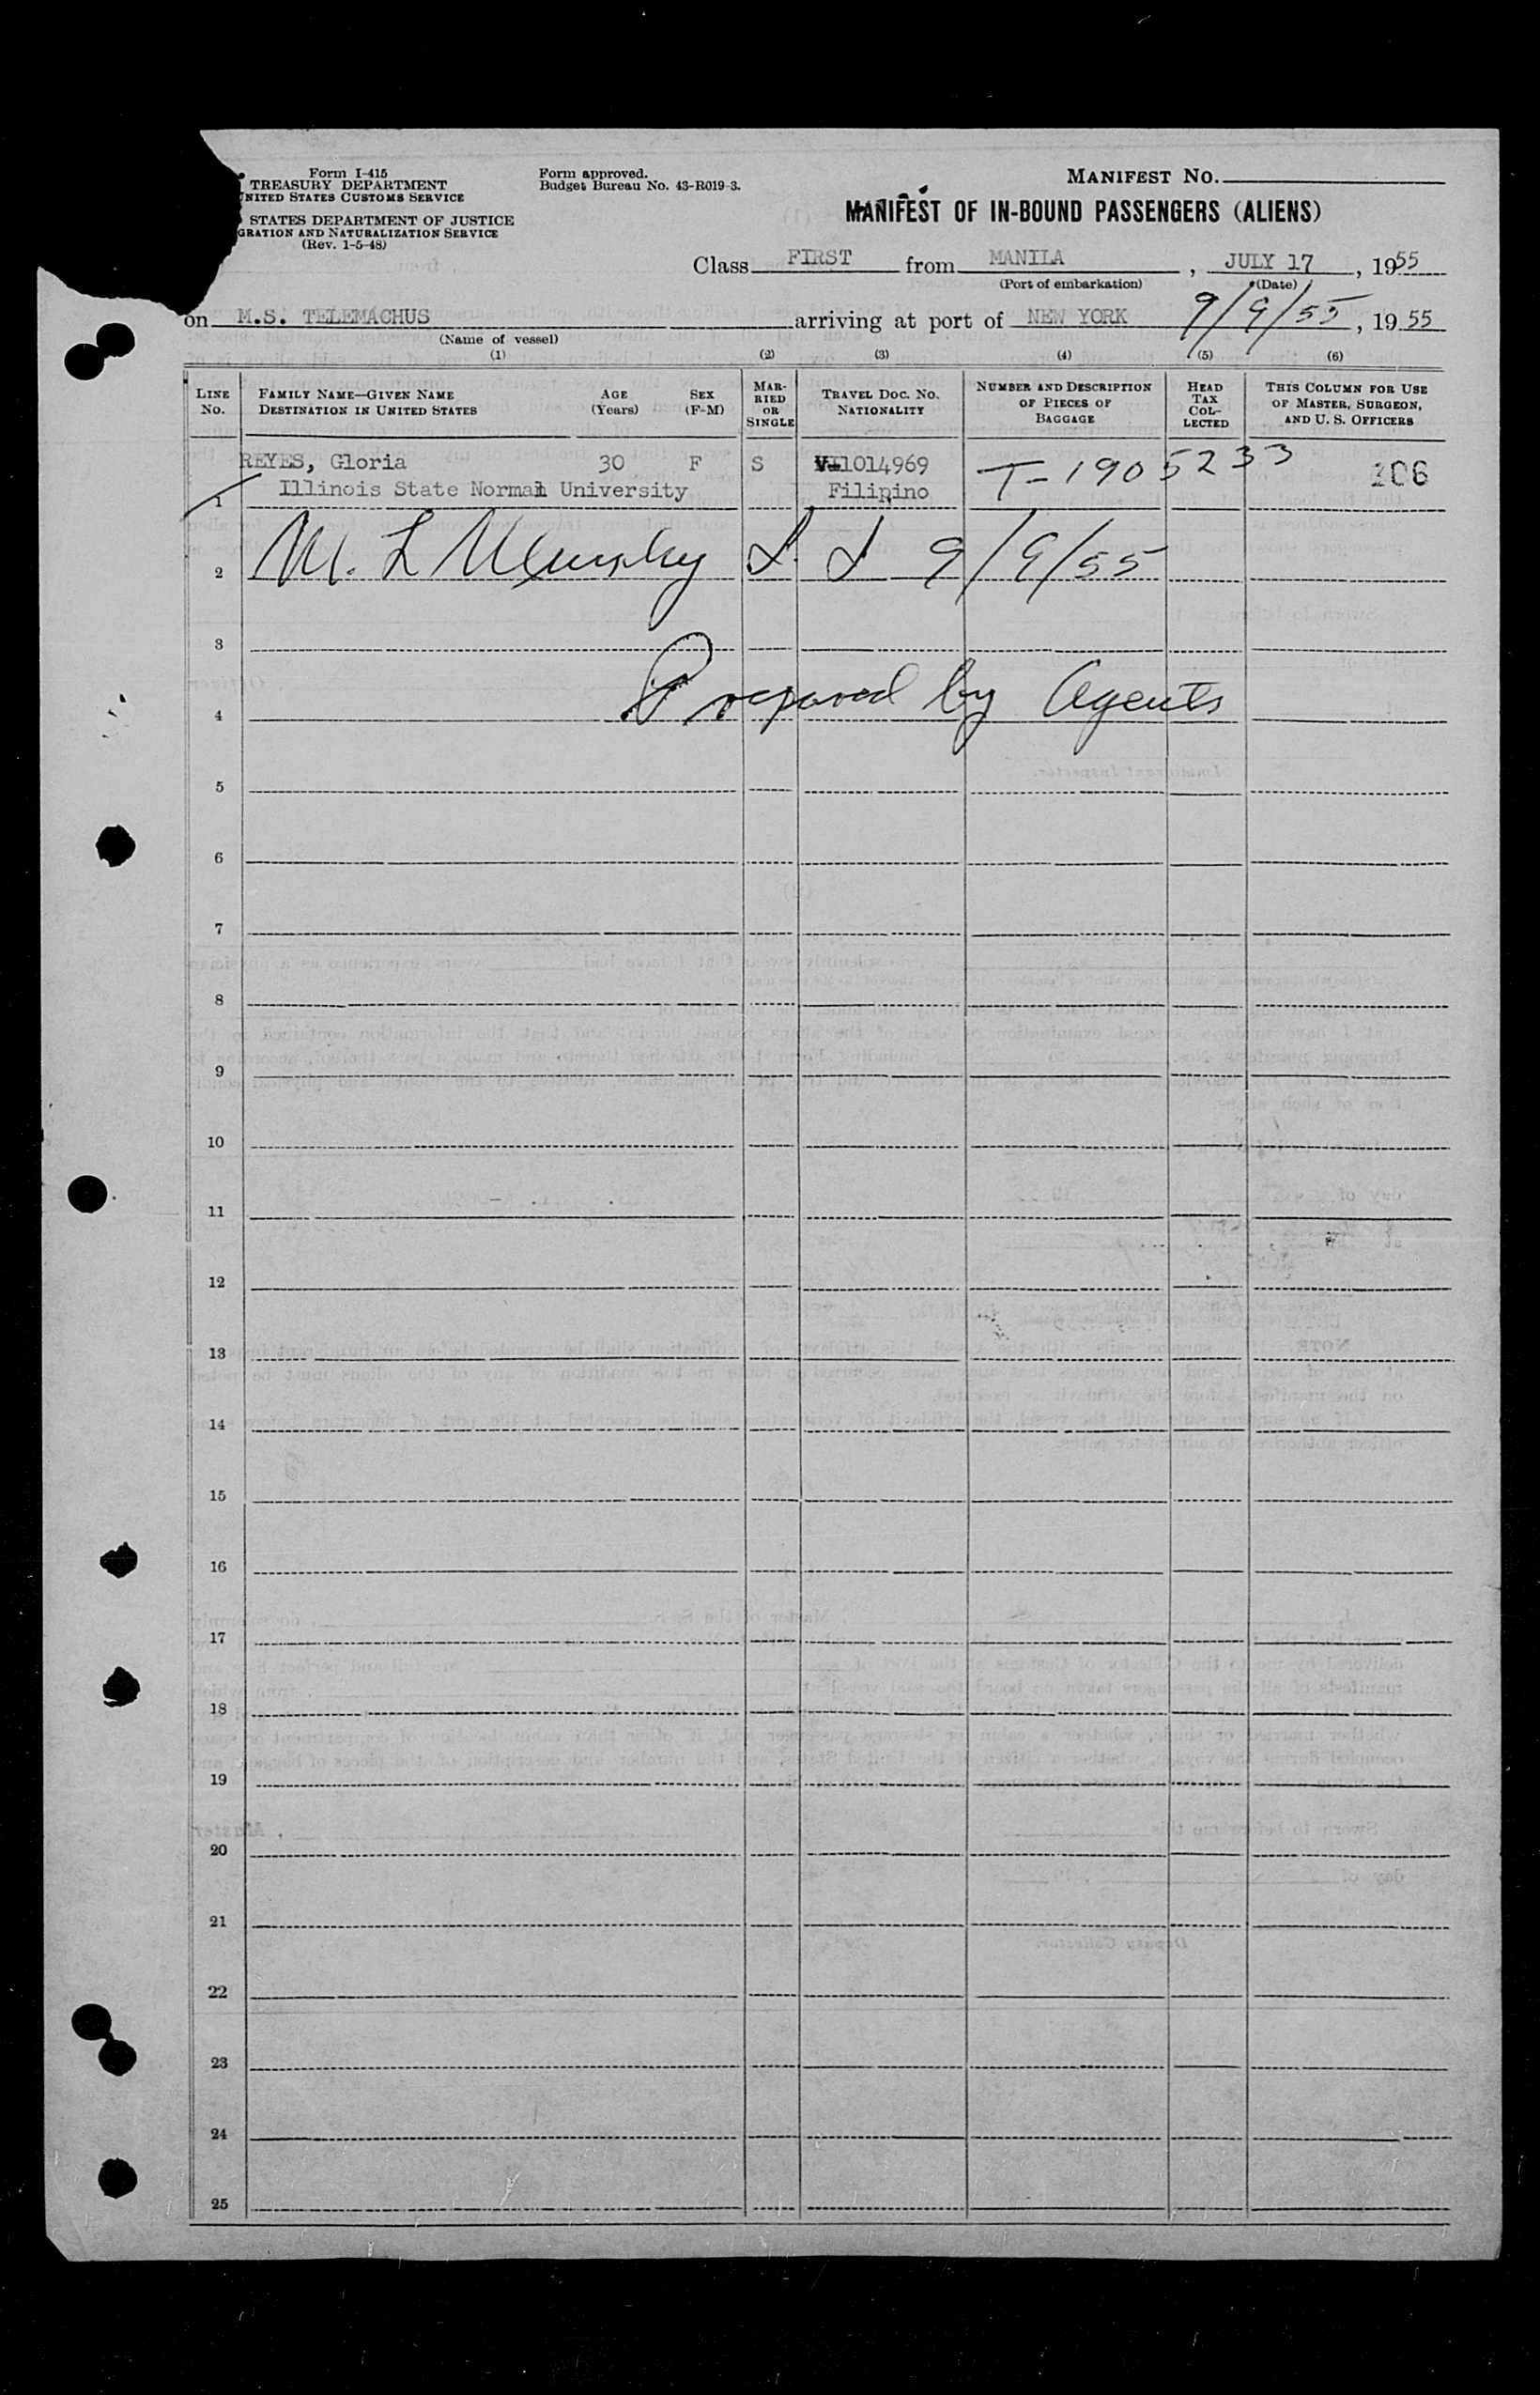 Form I-415
TREASURY DEPARTMENT
UNITED STATES CUSTOMS SERVICE
STATES DEPARTMENT OF JUSTICE
GRATION AND NATURALIZATION SERVICE
(Rev. 1-5-48)
Form approved.
Budget Bureau No. 43-R019-3.
MANIFEST NO.
MANIFEST OF IN-BOUND PASSENGERS (ALIENS)
Class FIRST from MANILA, JULY 17, 1955
(Port of embarkation) (Date)
on M.S. TELEMACHUS arriving at port of NEW YORK 9/9/55, 1955
(Name of vessel)
(1) (2) (3) (4) (5) (6)
LINE NO.
FAMILY NAME—GIVEN NAME
DESTINATION IN UNITED STATES
AGE (Years)
SEX (F-M)
MARRIED OR SINGLE
TRAVEL DOC. NO.
NATIONALITY
NUMBER AND DESCRIPTION OF PIECES OF BAGGAGE
HEAD TAX COLLECTED
THIS COLUMN FOR USE OF MASTER, SURGEON, AND U. S. OFFICERS
REYES, Gloria 30 F S 1014969 T-1905233 106
1 Illinois State Normal University Filipino
2 M. L 9/9/55
3
Prepared by Agents
4
5
6
7
8
9
10
11
12
13
14
15
16
17
18
19
20
21
22
23
24
25